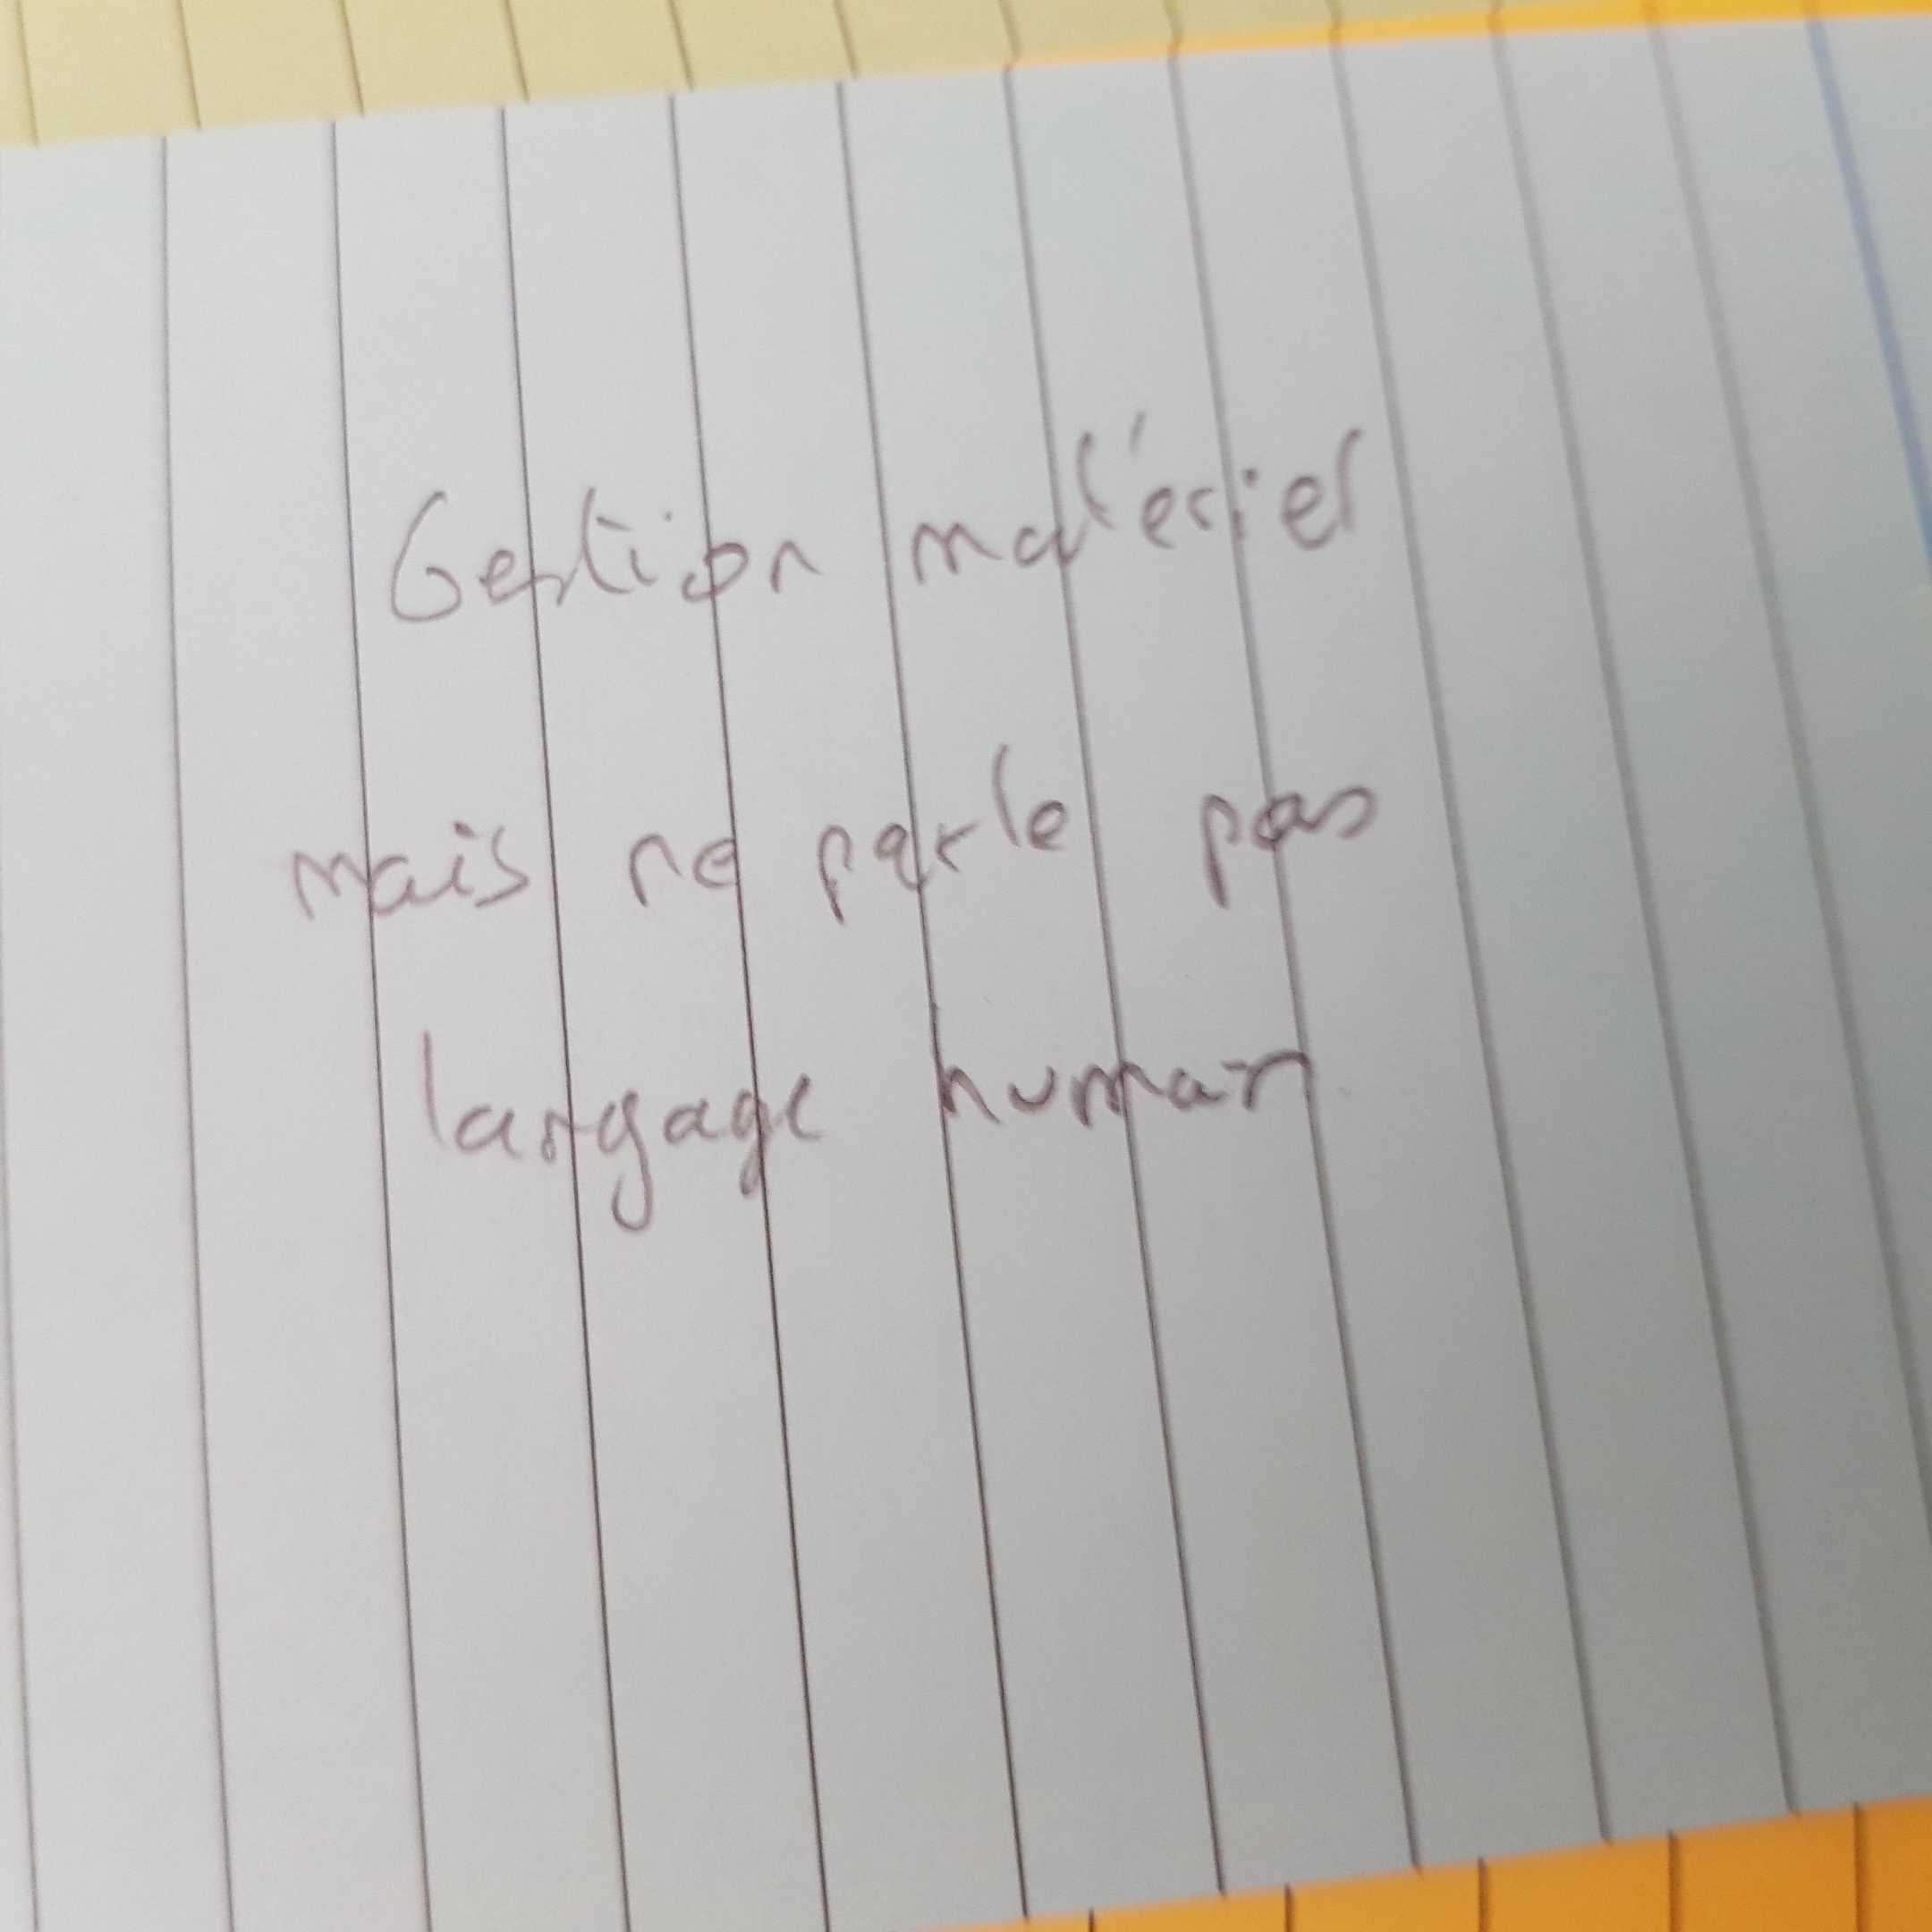 Gestion matériel
mais ne parle pas
langage humain